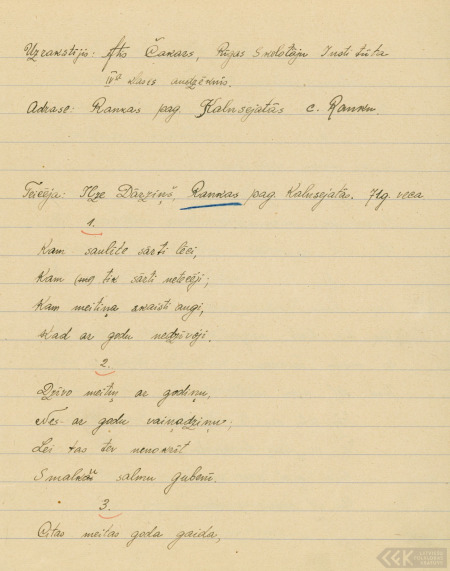 Uzrakstījis: Ato Čakars, Rīgas Skolotāju Institūta
IVb klases audzēknis.
Adrese: Rankas pag. Kalnsejatās c. Ranku
Teicēja: Ilze Dārziņš, Rankas pag. Kalnsejatās. 71g. veca
1.
Kam saulīte sārti lēci,
Kam (ne) tik sārti netecēji;
Kam meitiņa skaisti augi,
Kad ar godu nedzīvoji.
2.
Dzīvo meitiņ ar godiņu,
Nes ar godu vaiņadziņu;
Lei tas tev nenokrīt
Smalkā salmu gubenī.
3.
Citas meitas goda gaida,